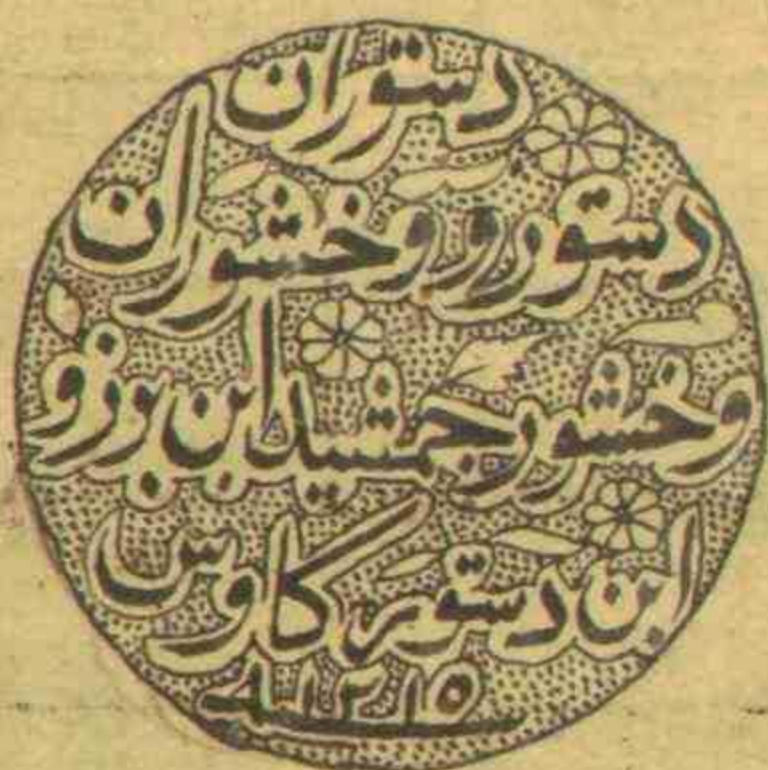 دستوران
دستور و وخشوران
وخشور جمشید ابن برزو
ابن دستور کاوس
سنه ۱۲۱۵